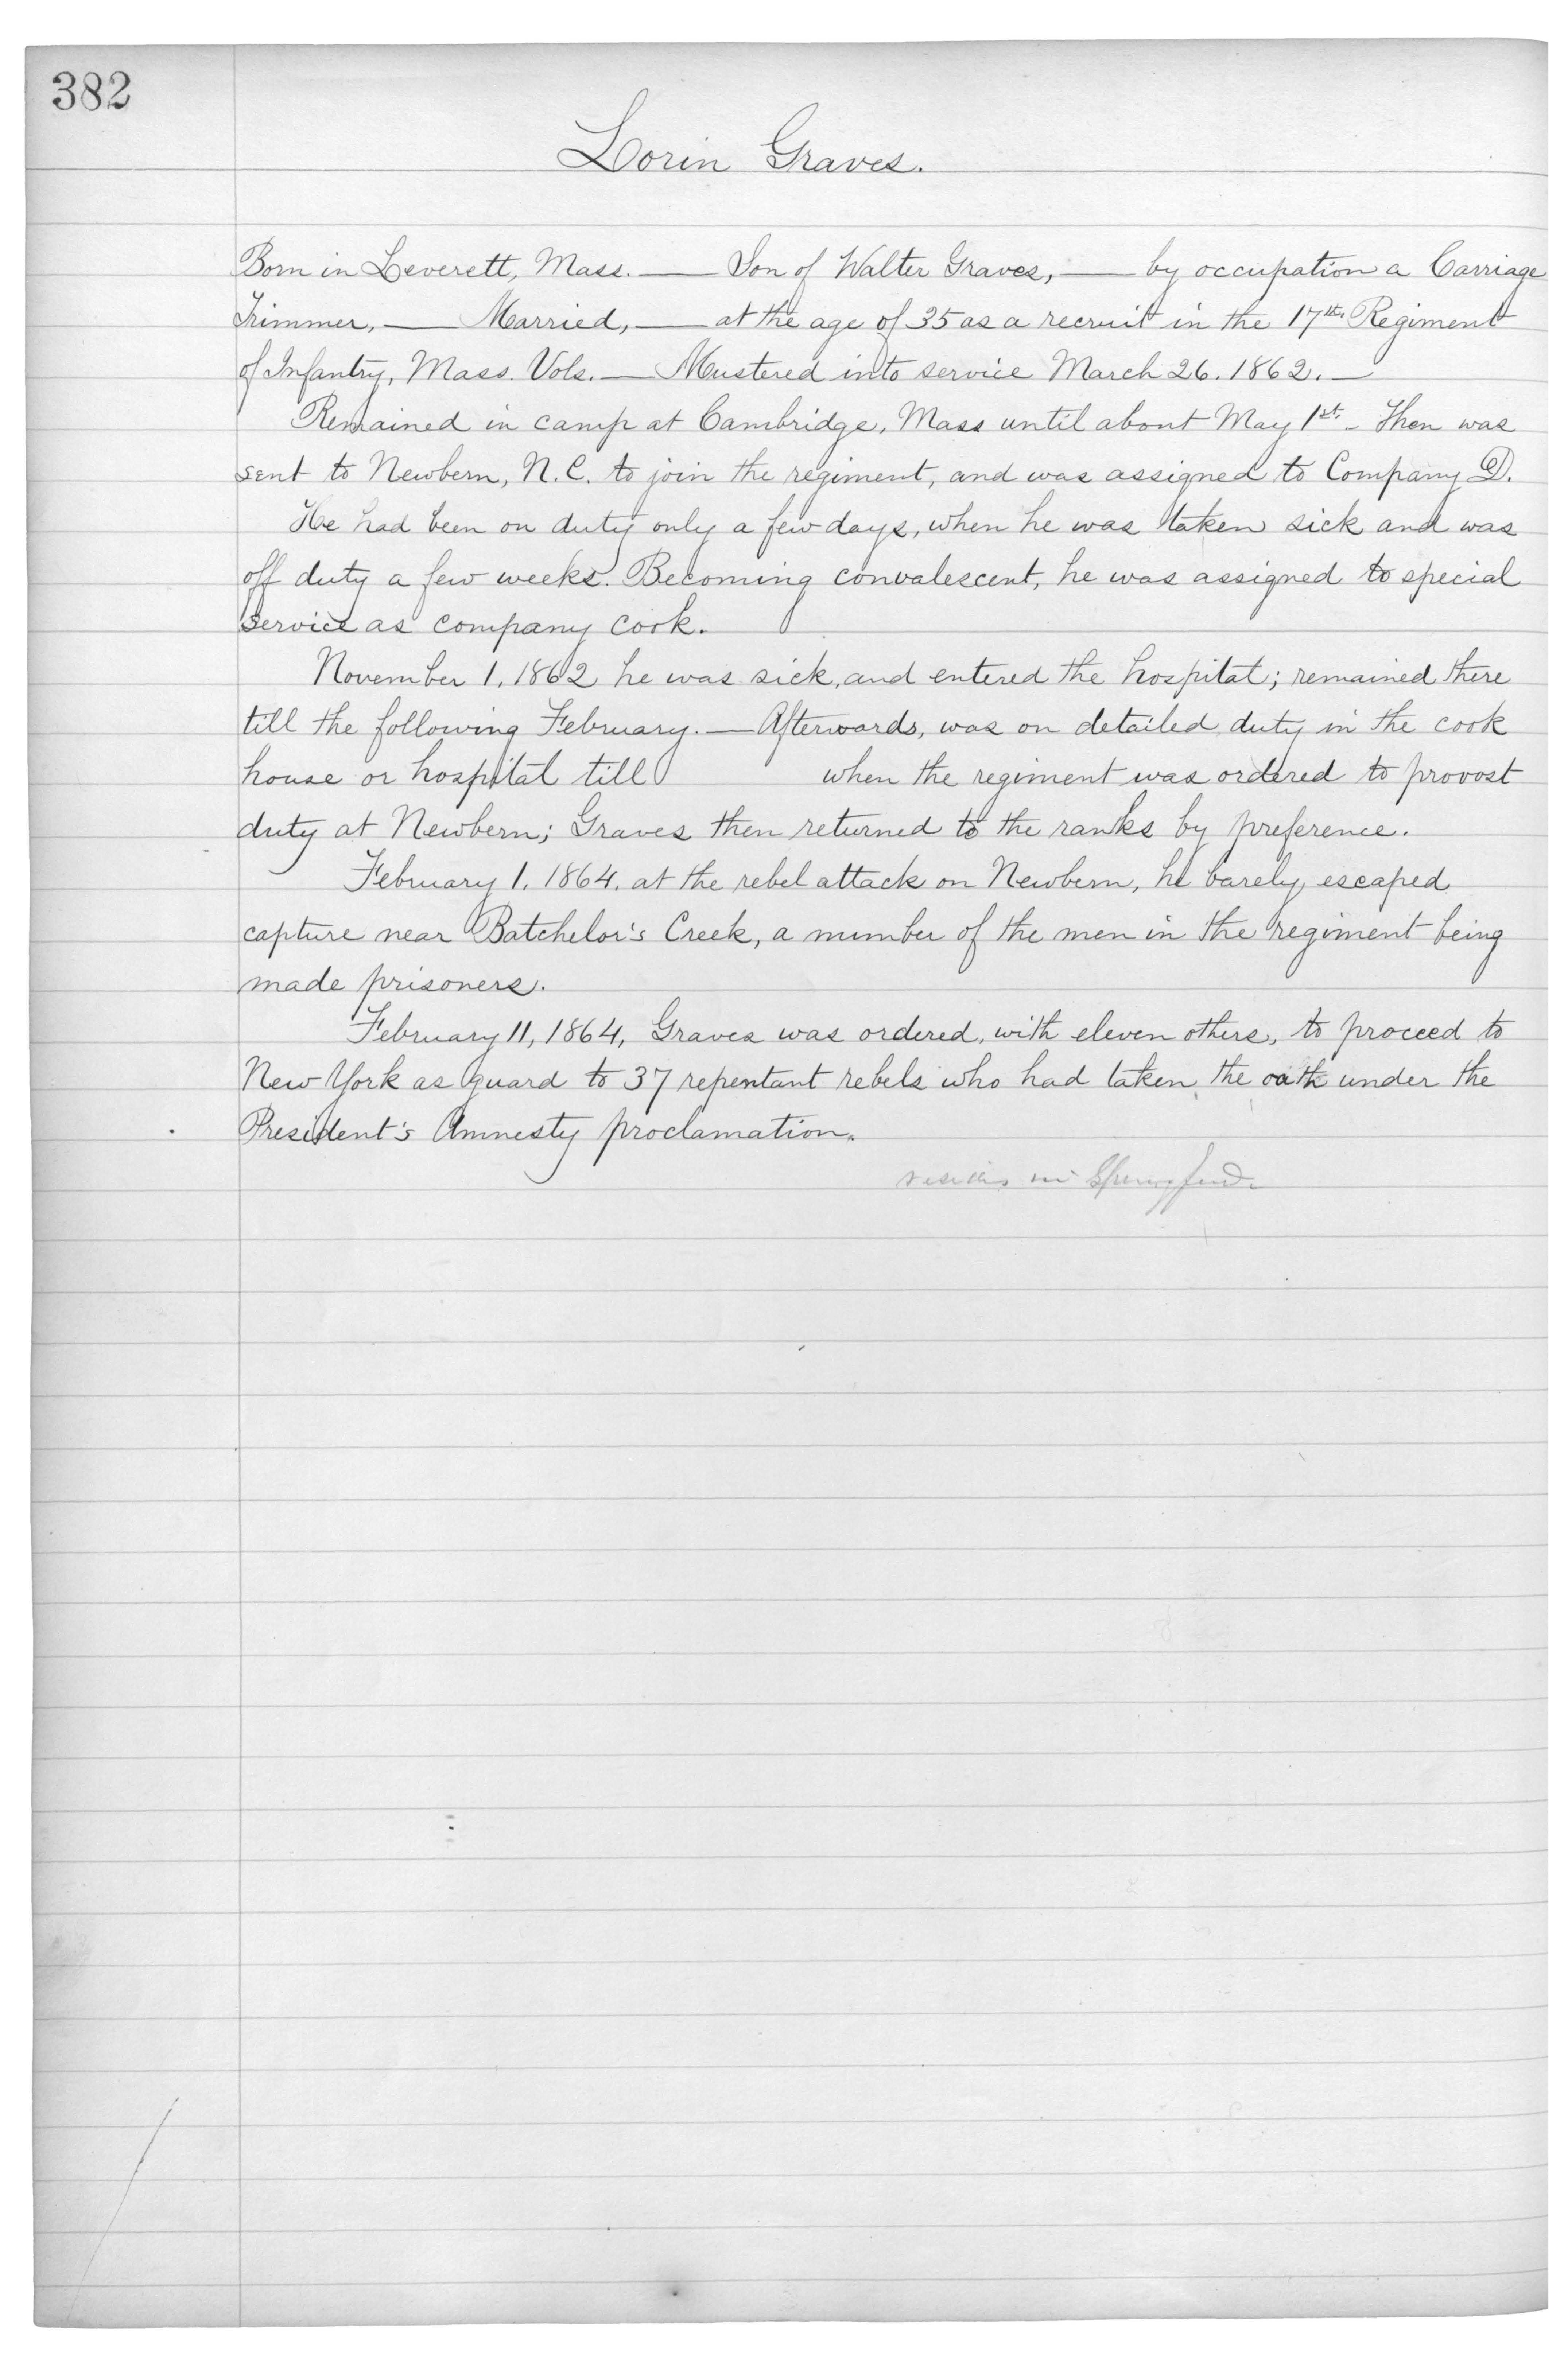 382
Lorin Graves.
Born in Leverett, Mass. — Son of Walter Graves, — by occupation a Carriage
Trimmer, — Married, — at the age of 35 as a recruit in the 17th. Regiment
of Infantry, Mass. Vols. — Mustered into service March 26. 1862. —
Remained in camp at Cambridge, Mass until about May 1st. - Then was
sent to Newbern, N.C. to join the regiment, and was assigned to Company D.
He had been on duty only a few days, when he was taken sick and was
off duty a few weeks. Becoming convalescent, he was assigned to special
service as company cook.
November 1, 1862 he was sick, and entered the hospital; remained there
till the following February. — Afterwards, was on detailed duty in the cook
house or hospital till when the regiment was ordered to provost
duty at Newbern; Graves then returned to the ranks by preference.
February 1. 1864. at the rebel attack on Newbern, he barely escaped
capture near Batchelor's Creek, a number of the men in the regiment being
made prisoners.
February 11, 1864, Graves was ordered, with eleven others, to proceed to
New York as guard to 37 repentant rebels who had taken the oath under the
President's Amnesty proclamation.
resides in Springfield